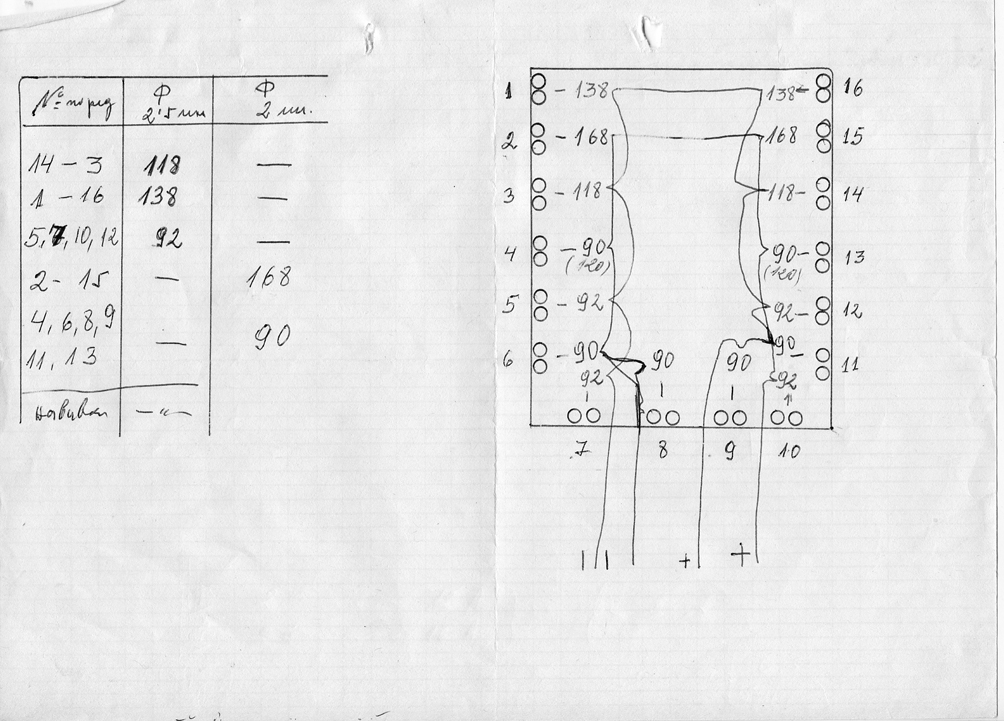 № по ряд Ф 2'5 мм Ф 2 мм.
14 – 3 118 —
1 – 16 138 —
5, 7, 10, 12 92 —
2 – 15 — 168
4, 6, 8, 9
11, 13 — 90
навивки —"—
1 – 138 138 16
2 – 168 168 15
3 – 118 118 – 14
4 – 90 90 – 13
(120) (120)
5 – 92 92 – 12
6 – 90 90 90 90 – 11
92 92
7 8 9 10
+ +